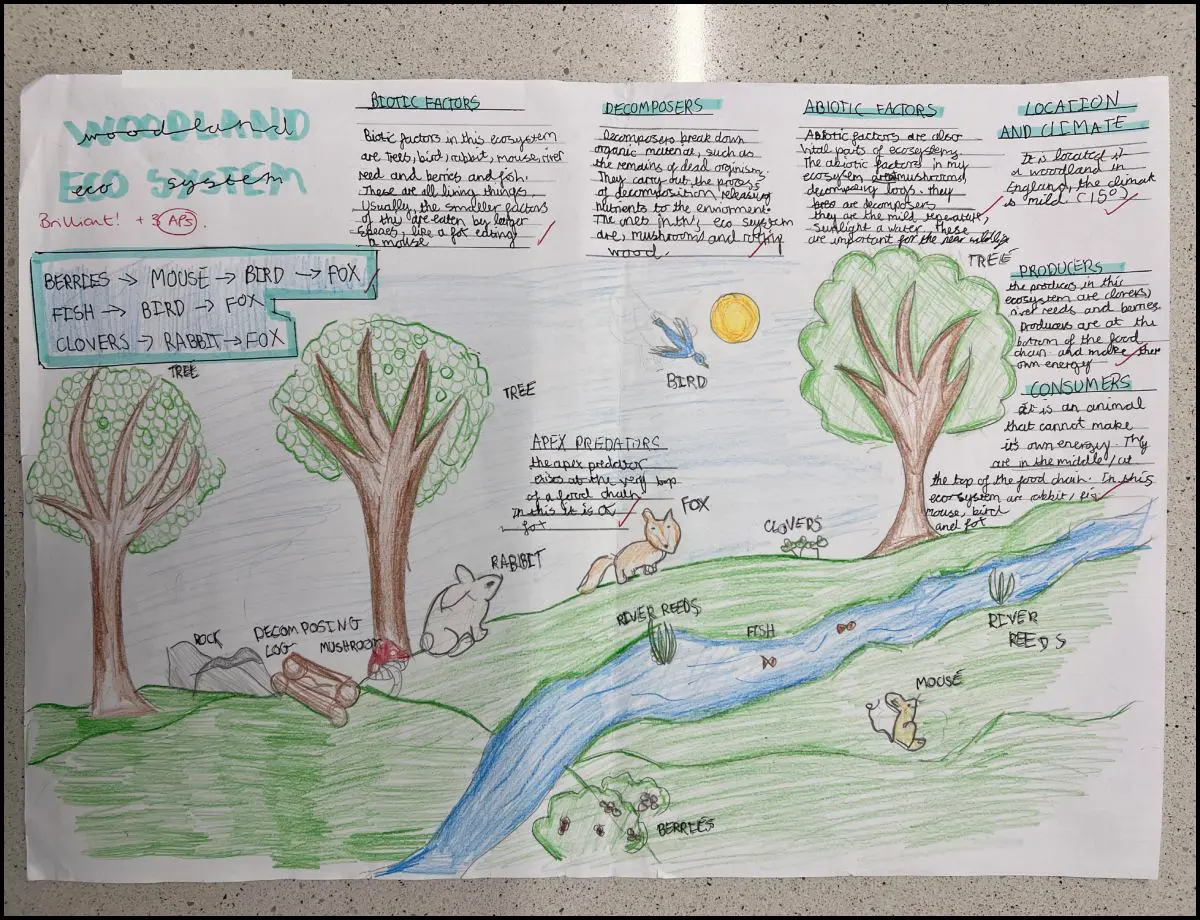 WOODLAND
woodland
ECO SYSTEM
eco system
Brilliant! + 3 APs.
BERRIES → MOUSE → BIRD → FOX
FISH → BIRD → FOX
CLOVERS → RABBIT → FOX
BIOTIC FACTORS
Biotic factors in this ecosystem
are trees, bird, rabbit, mouse, river
reed and berries and fish.
These are all living things.
Usually, the smaller factors
of the are eaten by larger
speaes, like a fox eating
a mouse
DECOMPOSERS
Decomposers break down
organic material, such as
the remains of dead orginism.
They carry out the process
of decomposition releasing
nutrients to the enviroment.
The ones in this eco system
are, mushrooms and rotting
wood.
ABIOTIC FACTORS
Abiotic factors are also
vital parts of ecosystems.
The abiotic factors in my
ecosystem mushroom
decomposing logs. they
are decomposers
they are the mild temperature,
sunlight a water, these
are important for the near wildlife
LOCATION
AND CLIMATE
It is located in
a woodland in
England, the climate
is mild. (15°)
PRODUCERS
the produces in this
ecosystem are clovers,
river reeds and berries
producers are at the
bottom of the food
chain and make their
own energy
CONSUMERS
It is an animal
that cannot make
its own energy. They
are in the middle / at
the top of the food chain. In this
ecosystem are rabbit, fis
mouse, bird
and fox
APEX PREDATORS
the apex predator
exises at the very top
of a food chain
In this it is a
fox
TREE
TREE
TREE
BIRD
FOX
CLOVERS
RABIBIT
RIVER REEDS
FISH
RIVER
REEDS
ROCK
DECOMPOSING
LOG
MUSHROOM
MOUSE
BERRIES